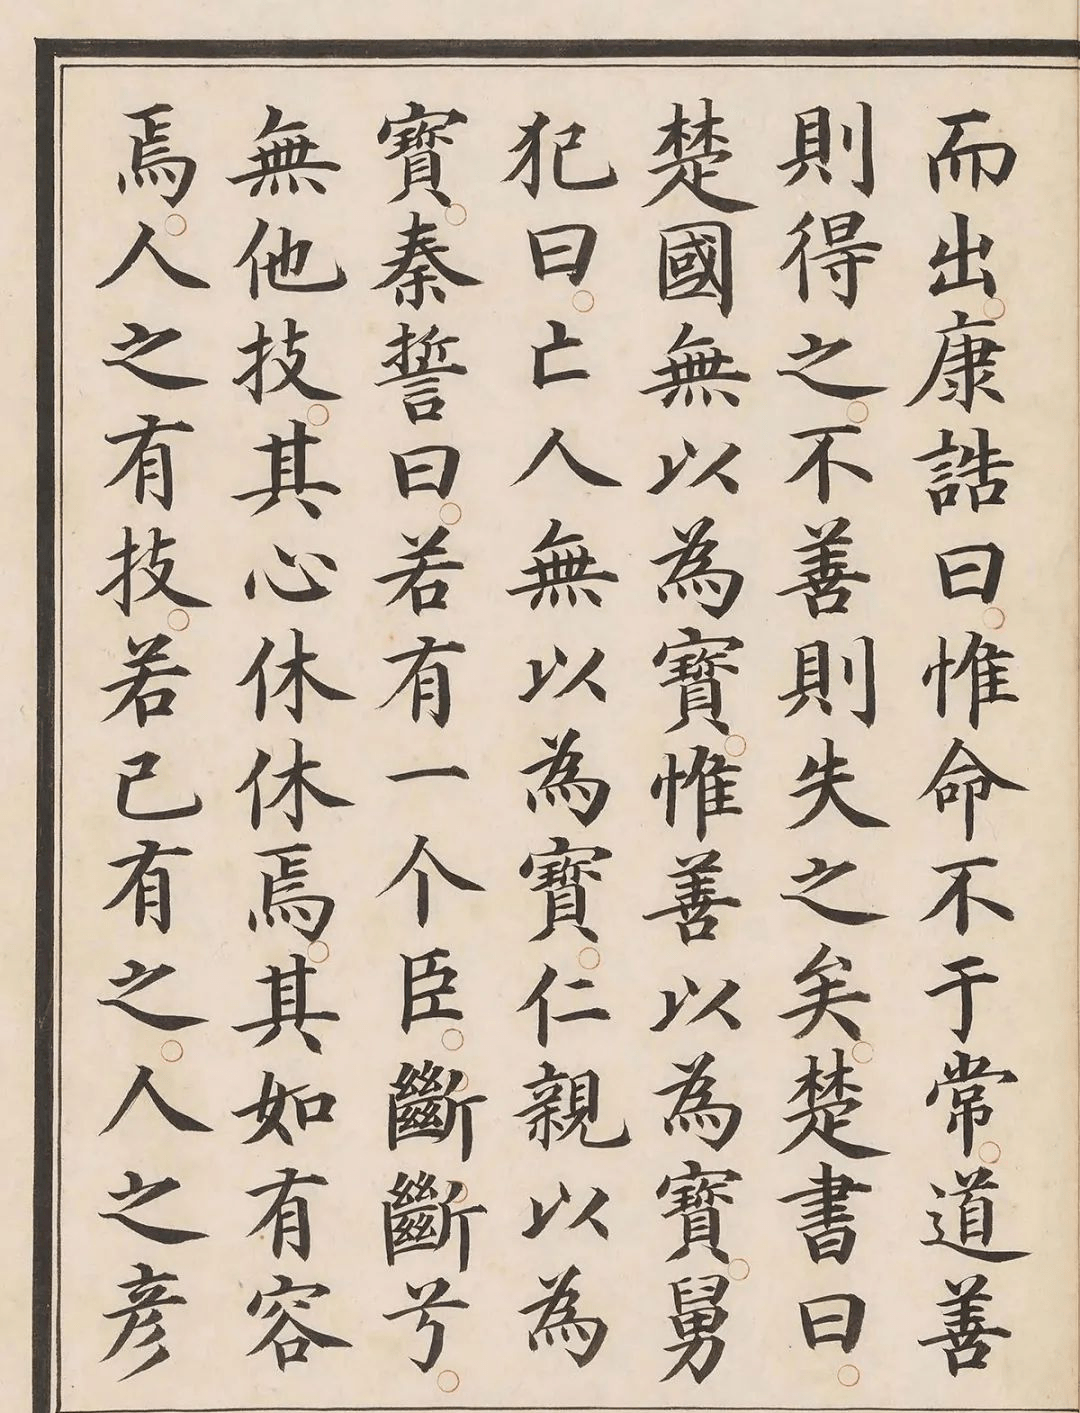 而出康誥曰惟命不于常道善
則得之不善則失之矣楚書曰
楚國無以為寶惟善以為寶舅
犯曰亡人無以為寶仁親以為
寶秦誓曰若有一个臣斷斷兮
無他技其心休休焉其如有容
焉人之有技若己有之人之彥